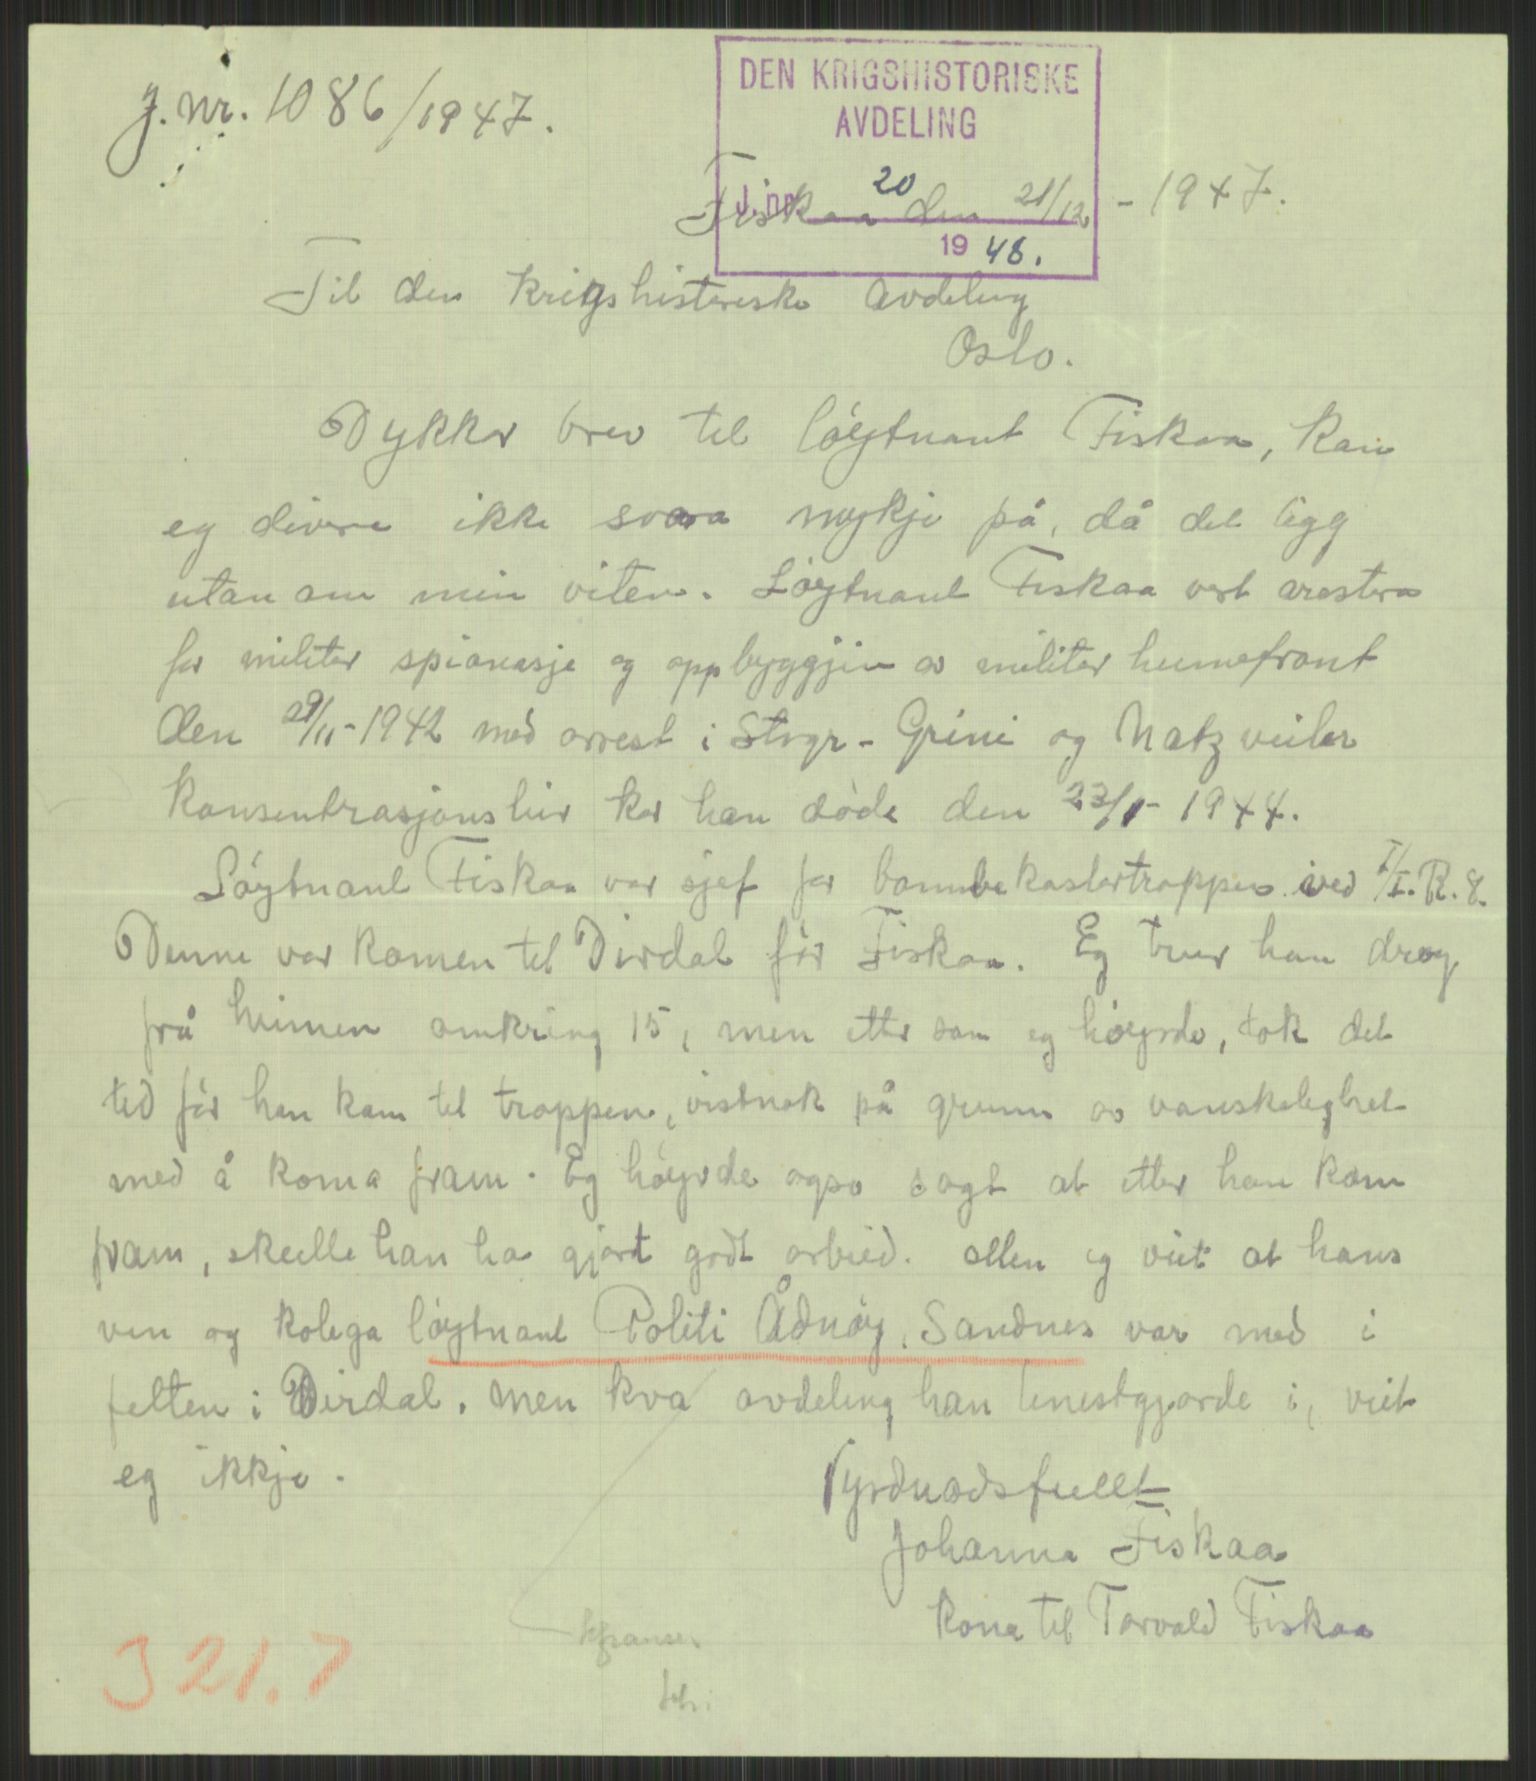 j. nr. 1086/1947.
DEN KRIGSHISTORISKE
AVDELING
J.nr. 20
1948.
Fiskaa den 21/12 - 1947.
Til den krigshistoriske avdeling
Oslo.
Dykkar brev til löytnant Fiskaa, kan
eg divere ikke svara mykje på, då det ligg
utan om min viten. Löytnant Fiskaa vart arestera
for militær spionasje og oppbyggjin av militær heimefront
den 29/11-1942 med arrest i Stvgr - Grini og Natzveiler
konsentrasjonsleir kor han döde den 23/1-1944.
Löytnant Fiskaa var sjef for bombekastartroppen ved I/I.R.8.
Denne var komen til Dirdal för Fiskaa. Eg trur han drog
frå heimen omkring 15, men etter som eg höyrde, tok det
tid för han kom til troppen, vistnok på grunn av vanskelighet
med å koma fram. Eg höyrde også sagt at etter han kom
fram, skulle han ha gjort godt arbeid. ellen eg veit at hans
ven og kolega löytnant Politi Ådnöy, Sandnes var med i
felten i Dirdal. men kva avdeling han tenestgjorde i, veit
eg ikkje.
Vyrdnadsfullt
Johanna Fiskaa
Kona til Torvald Fiskaa
321.7